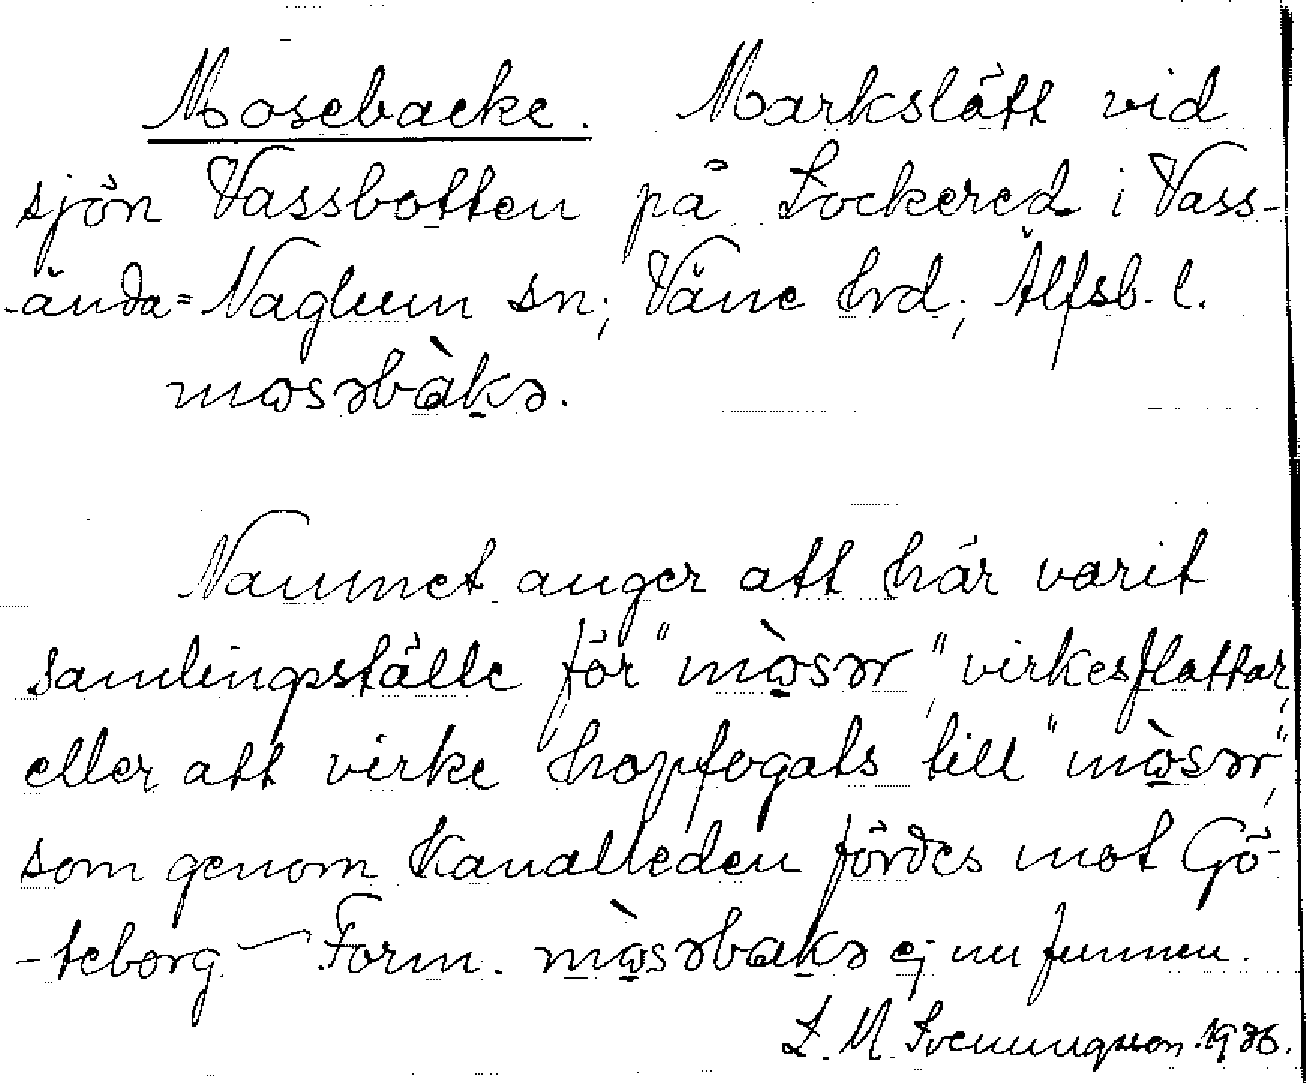 Mosebacke. Markslätt vid
sjön Vassbotten på Lockered i Vass-
-ända=Naglum sn; Väne hrd; Älfsb. l.
mɷsəbàkə.
Namnet anger att här varit
samlingställe för "mɷ̀sər", virkesflottar,
eller att virke hopfogats till "mɷ̀sər",
som genom Kanalleden fördes mot Gö-
-teborg — Form. mɷ̀səbakə ej nu funnen.
L. M. Svenungsson. 1936.